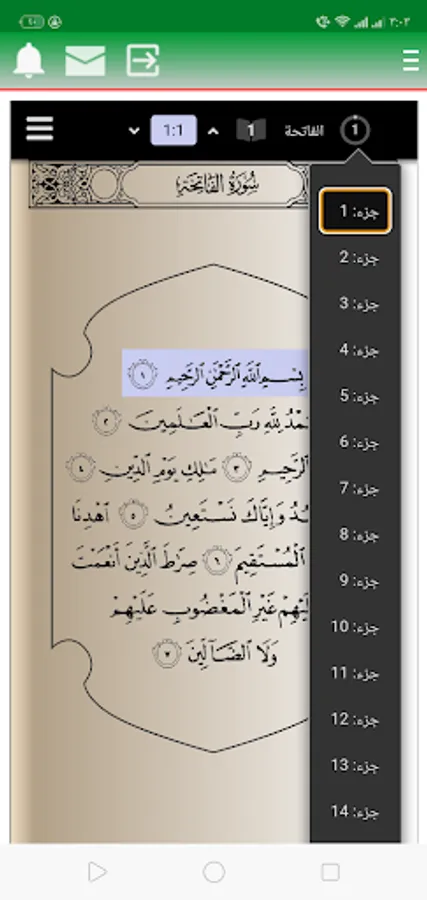 ٣:٠٣
1 الفاتحة 1 1:1
سُورَةُ الفَاتِحَةِ
بِسْمِ ٱللَّهِ ٱلرَّحْمَٰنِ ٱلرَّحِيمِ ١
لِلَّهِ رَبِّ ٱلْعَٰلَمِينَ ٢
ٱلرَّحِيمِ ٣ مَٰلِكِ يَوْمِ ٱلدِّينِ ٤
وَإِيَّاكَ نَسْتَعِينُ ٥ ٱهْدِنَا
ٱلْمُسْتَقِيمَ ٦ صِرَٰطَ ٱلَّذِينَ أَنْعَمْتَ
غَيْرِ ٱلْمَغْضُوبِ عَلَيْهِمْ
وَلَا ٱلضَّآلِّينَ ٧
جزء: 1
جزء: 2
جزء: 3
جزء: 4
جزء: 5
جزء: 6
جزء: 7
جزء: 8
جزء: 9
جزء: 10
جزء: 11
جزء: 12
جزء: 13
جزء: 14